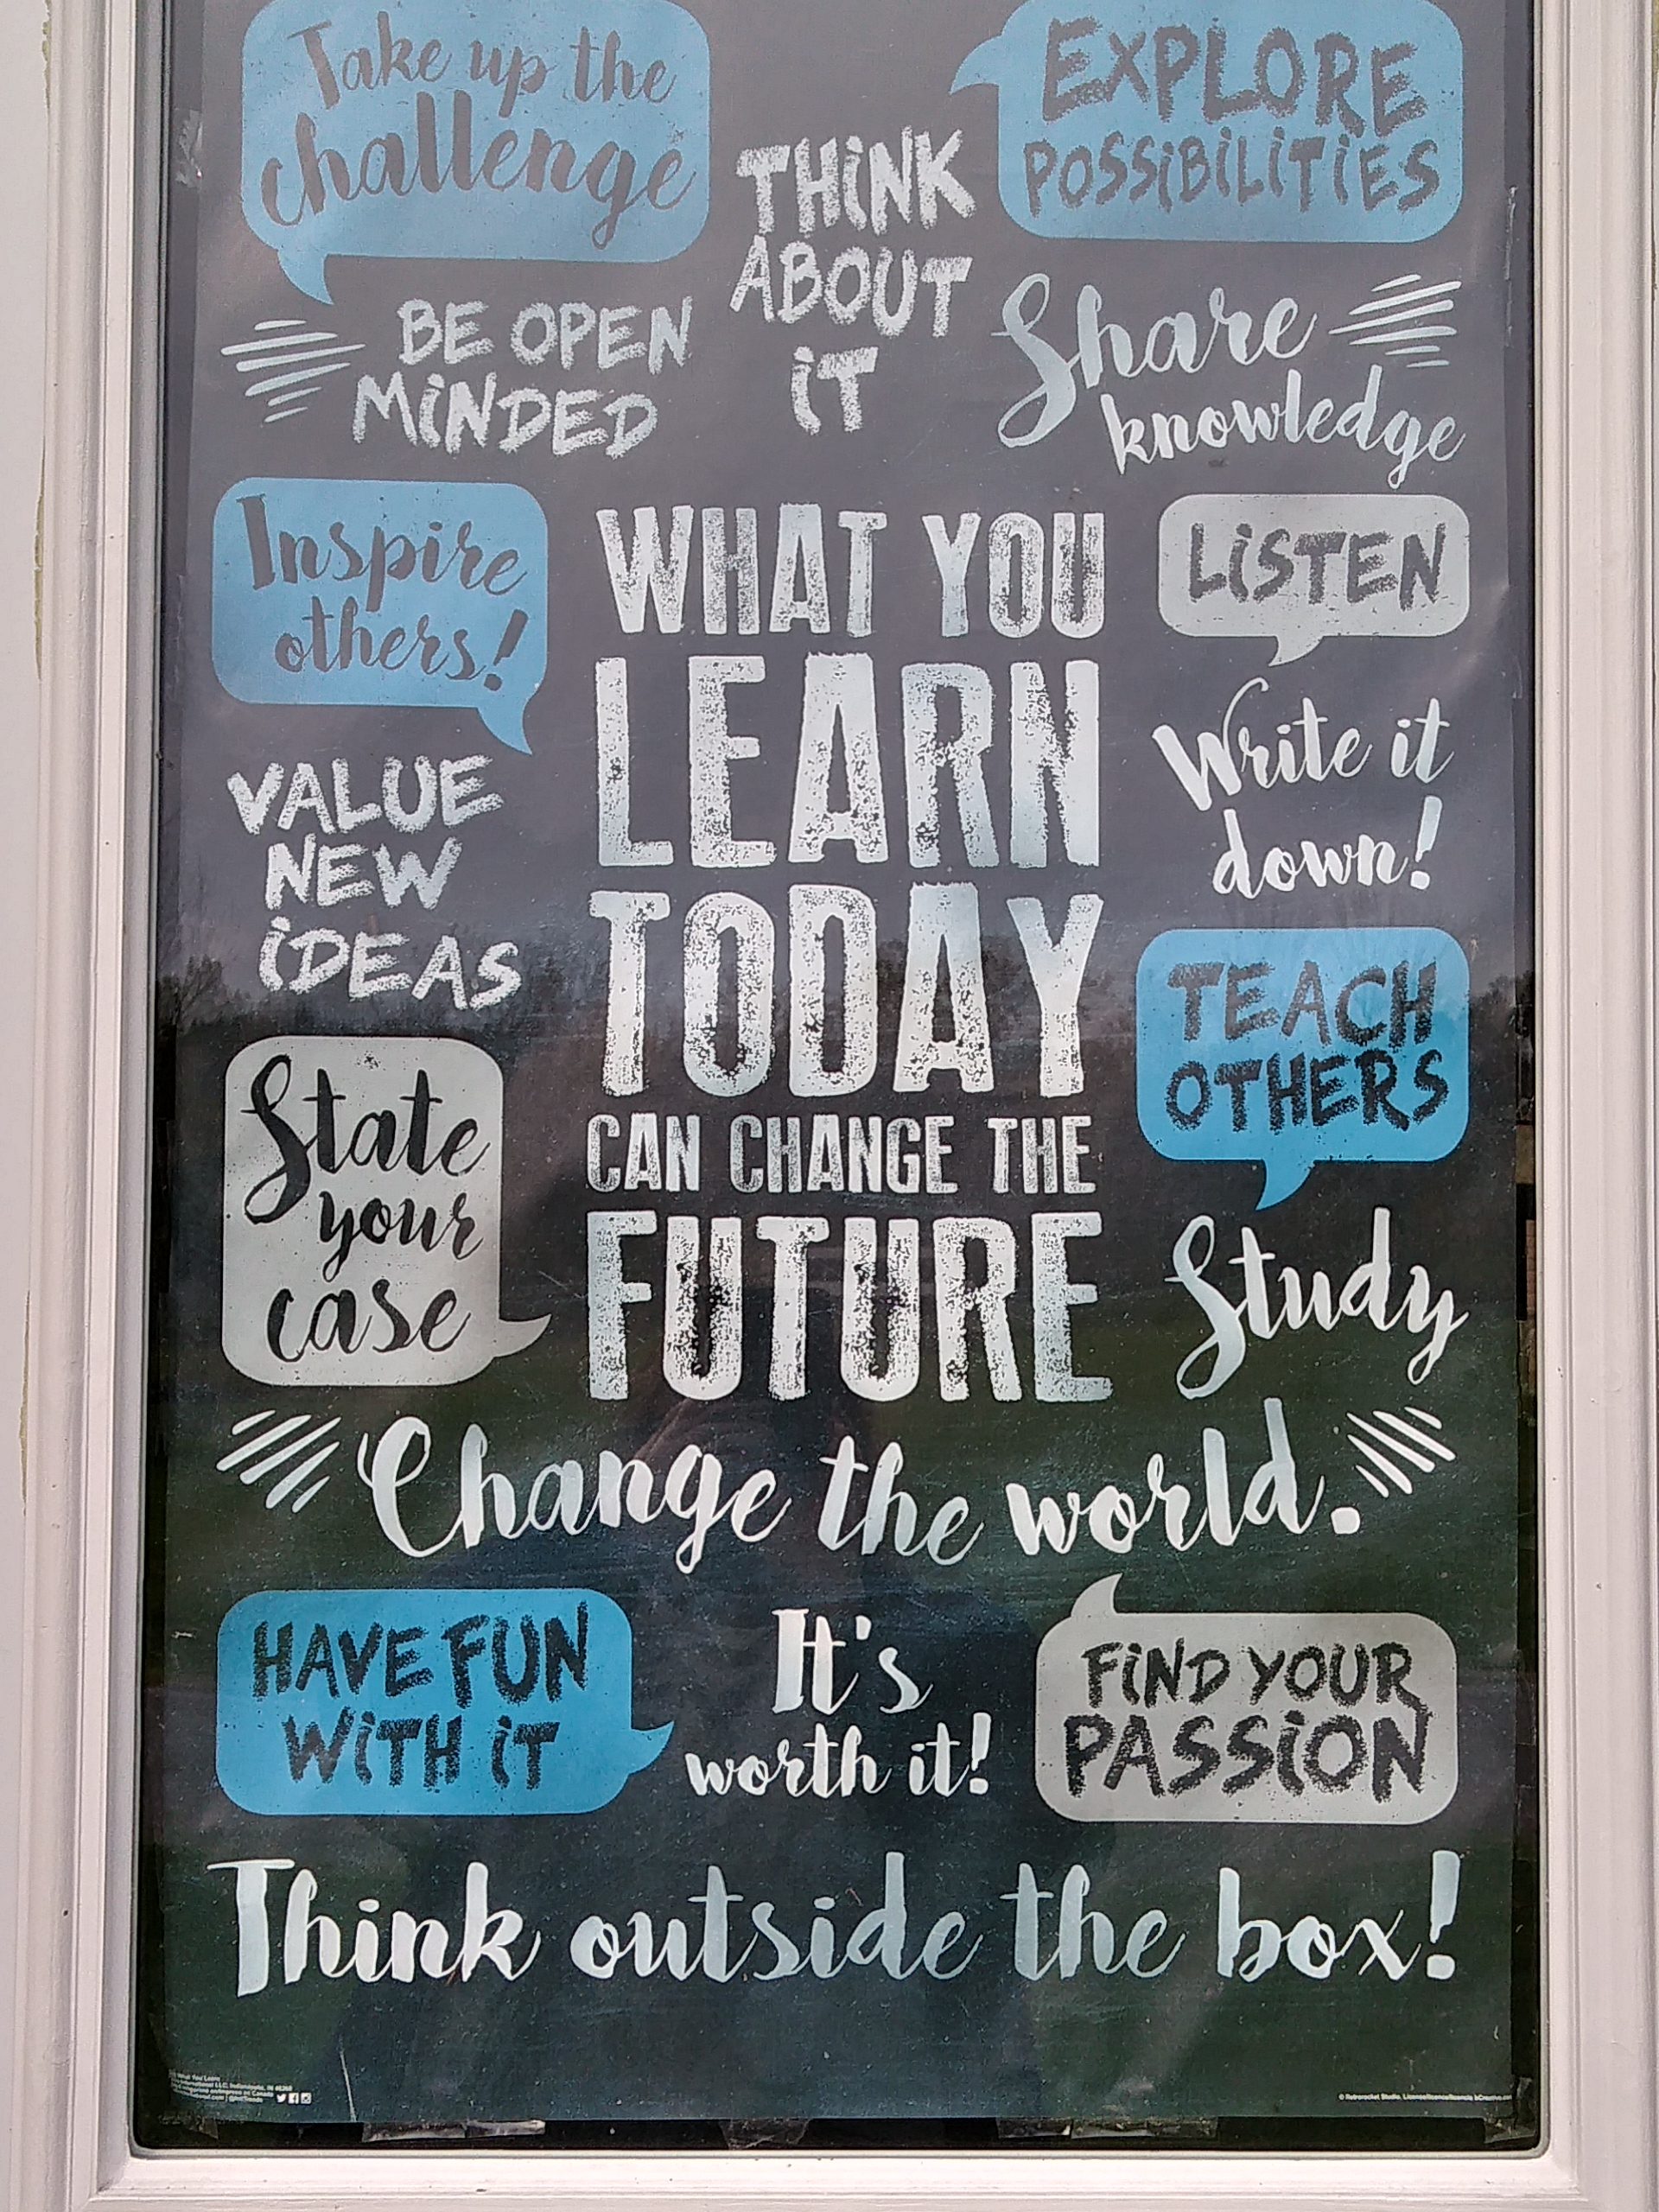 Take up the
challenge
EXPLORE
POSSiBiLiTiES
THiNK
ABOUT
iT
BE OPEN
MiNDED
Share
knowledge
Inspire
others!
WHAT YOU
LEARN
TODAY
CAN CHANGE THE
FUTURE
LiSTEN
Write it
down!
VALUE
NEW
iDEAS
TEACH
OTHERS
State
your
case
Study
Change the world.
HAVE FUN
WiTH iT
It's
worth it!
FiND YOUR
PASSiON
Think outside the box!
What You Learn
International LLC, Indianapolis, IN
© Retrorocket Studio,